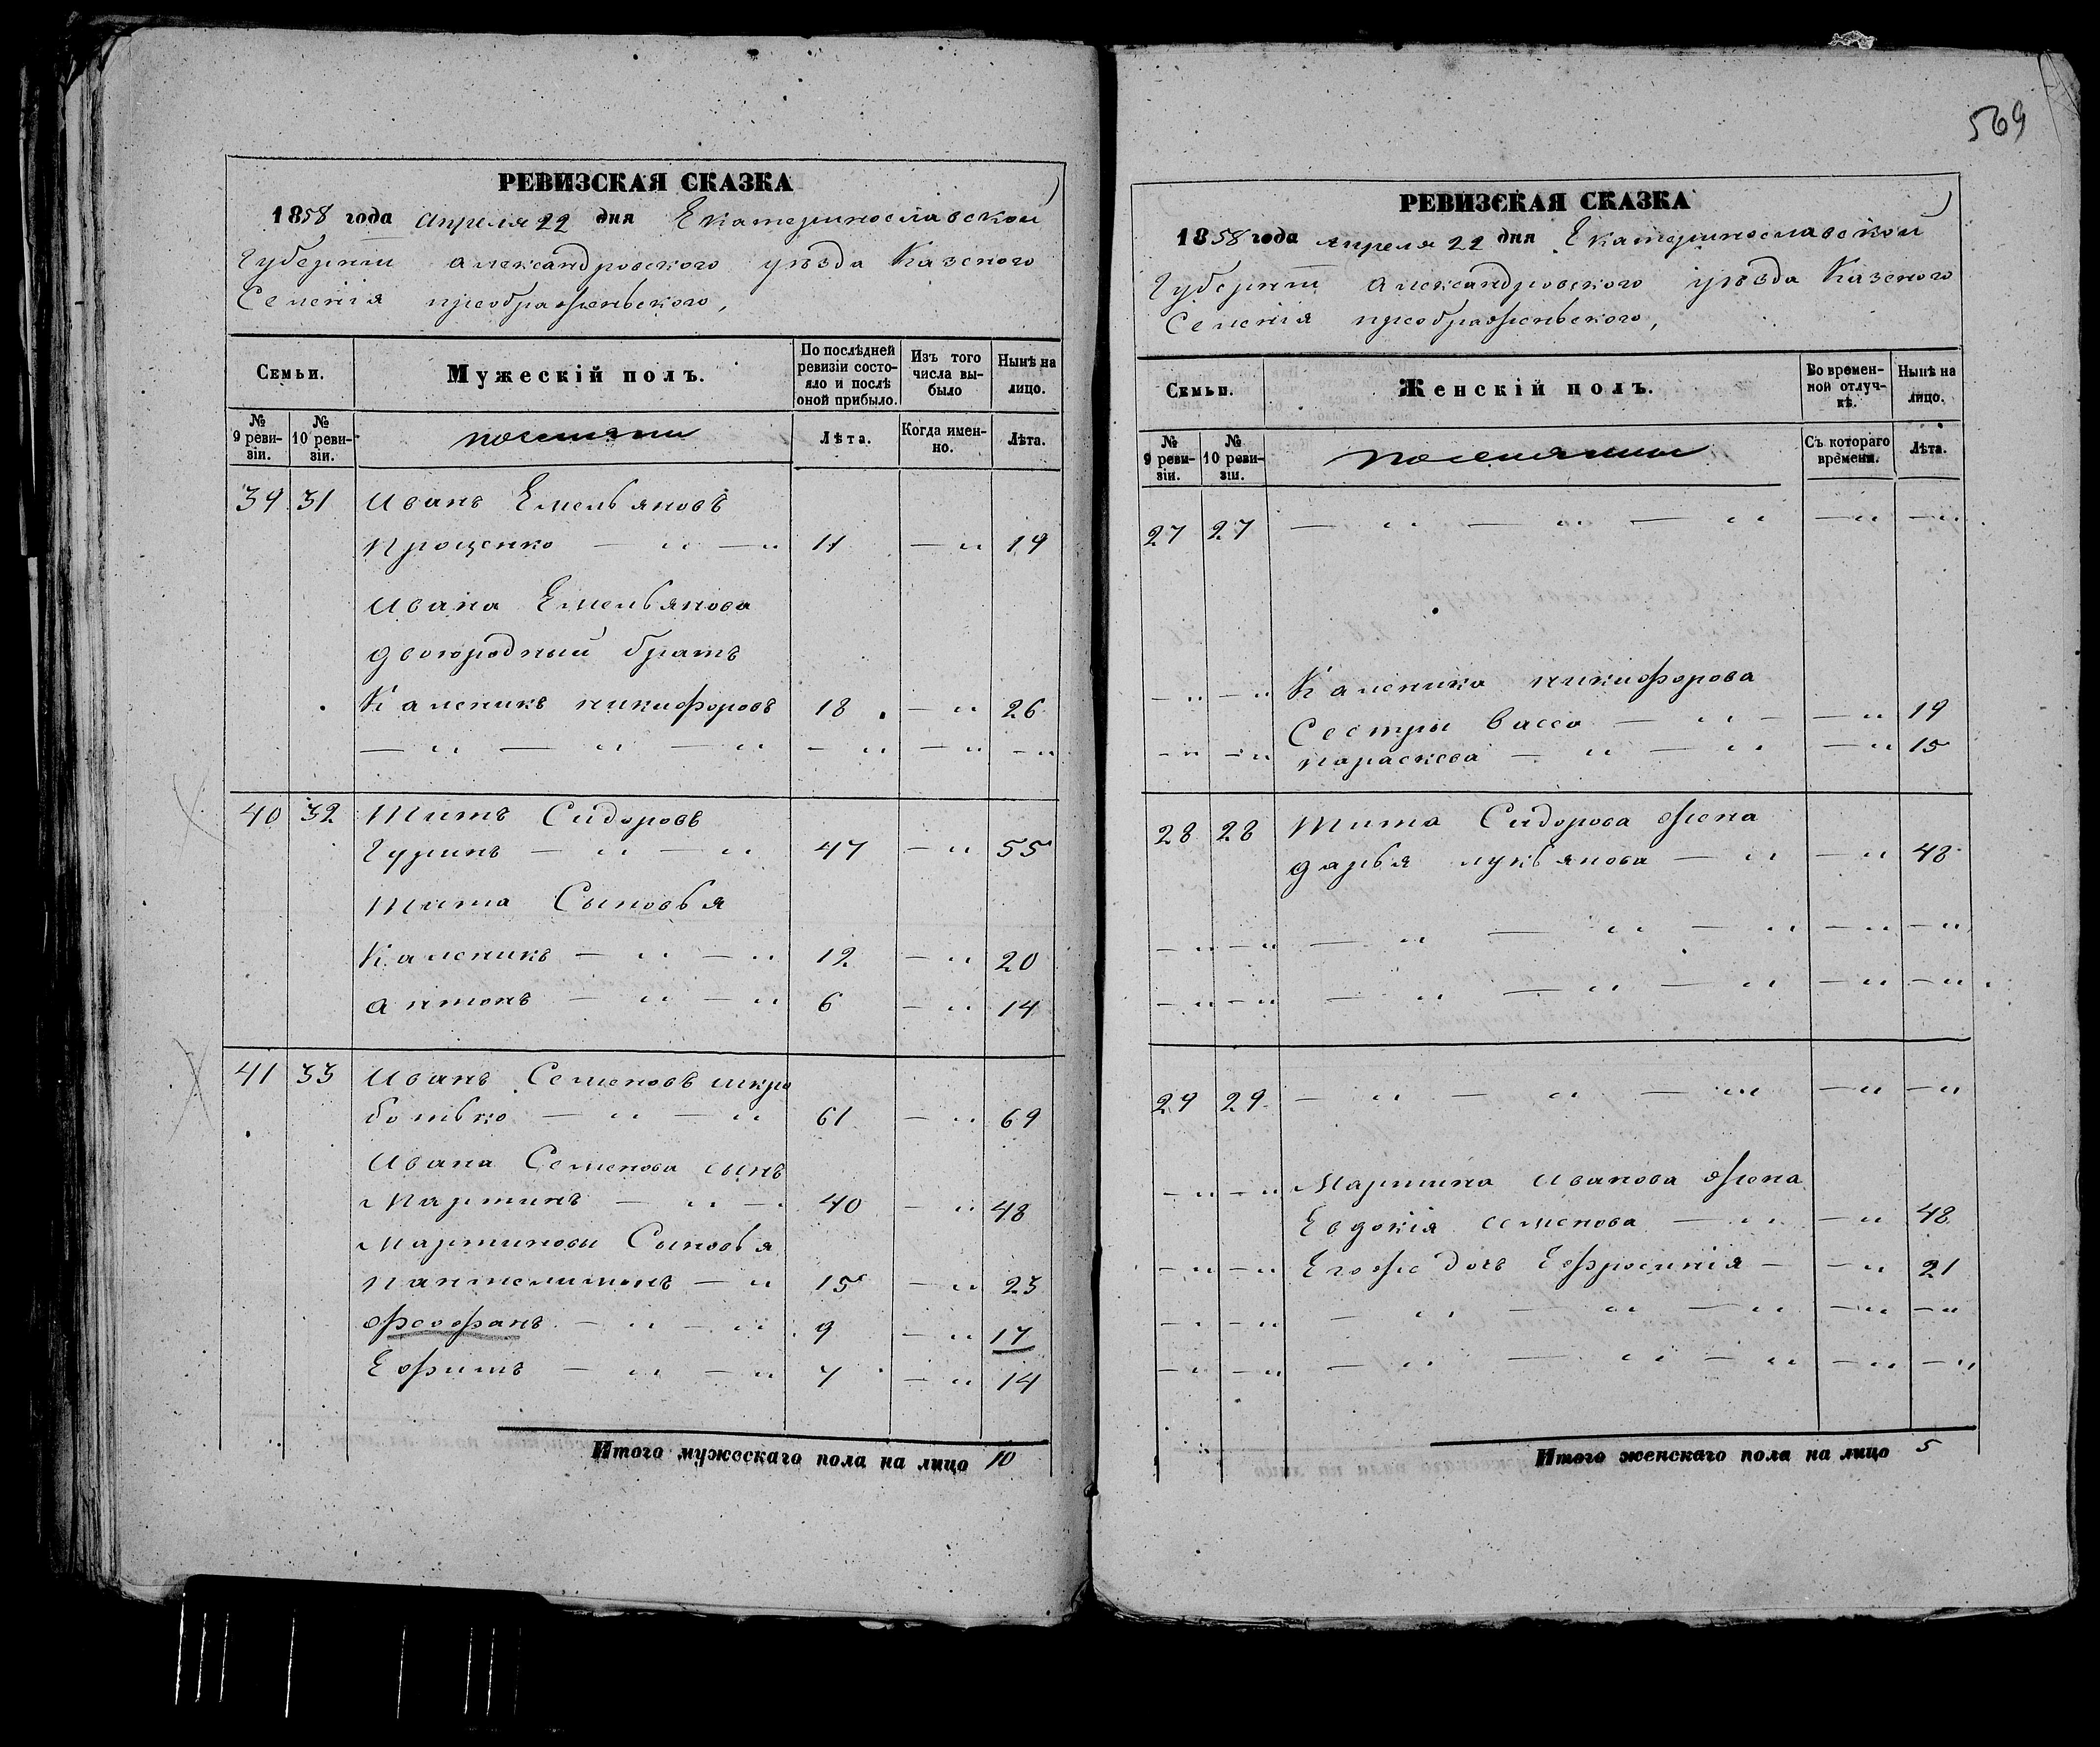 РЕВИЗСКАЯ СКАЗКА
1858 года апреля 22 дня Екатеринославской
Губернiи александровского уѣзда Казеного
Селенiя преображеньского,
Семьи.
Мужескiй полъ.
По послѣдней ревизiи состояло и послѣ оной прибыло.
Изъ того числа выбыло
Нынѣ на лицо.
№ 9 ревизiи.
№ 10 ревизiи.
поселяни
Лѣта.
Когда именно.
Лѣта.
39 31 Иванъ Емельяновъ
Проценко — " — " 11 — " 19
Ивана Емельянова
двоюродный братъ
Каленикъ никифоровъ 18 — " 26
— " — " — " — " — " — "
40 32 Титъ Сидоровъ
Гуринъ — " — " 47 — " 55
Тита Сыновья
Каленикъ — " — " 12 — " 20
антонъ — " — " 6 — " 14
41 33 Иванъ Семеновъ шкро
ботько — " — " 61 — " 69
Ивана Семенова сынъ
Мартинъ — " — " 40 — " 48
Мартиновы Сыновья
Пантелимонъ — " 15 — " 23
Феофанъ — " — " 9 — " 17
Ефимъ — " — " 7 — " 14
Итого мужескаго пола на лицо 10
569
РЕВИЗСКАЯ СКАЗКА
1858 года апреля 22 дня Екатеринославской
Губернiи александровского уѣзда Казеного
Селенiя преображеньского,
Семьи.
Женскiй полъ.
Во временной отлучкѣ.
Нынѣ на лицо.
№ 9 ревизiи.
№ 10 ревизiи.
поселянки
Съ котораго времени.
Лѣта.
27 27 — " — " — " — " — "
— " — " Каленика никифорова
Сестры Васса — " — — " 19
— " — " параскева — " — " — " 15
28 28 Тита Сидорова жена
дарья лукьянова — " — " 48
— " — " — " — " — " — " — "
— " — " — " — " — " — " — "
29 29 — " — " — " — " — "
— " — " Мартина Иванова жена
Евдокiя семенова — " — " 48
— " — " Егоже дочь Ефросинiя — — " 21
— " — " — " — " — " — " — "
— " — " — " — " — " — " — "
Итого женскаго пола на лицо 5